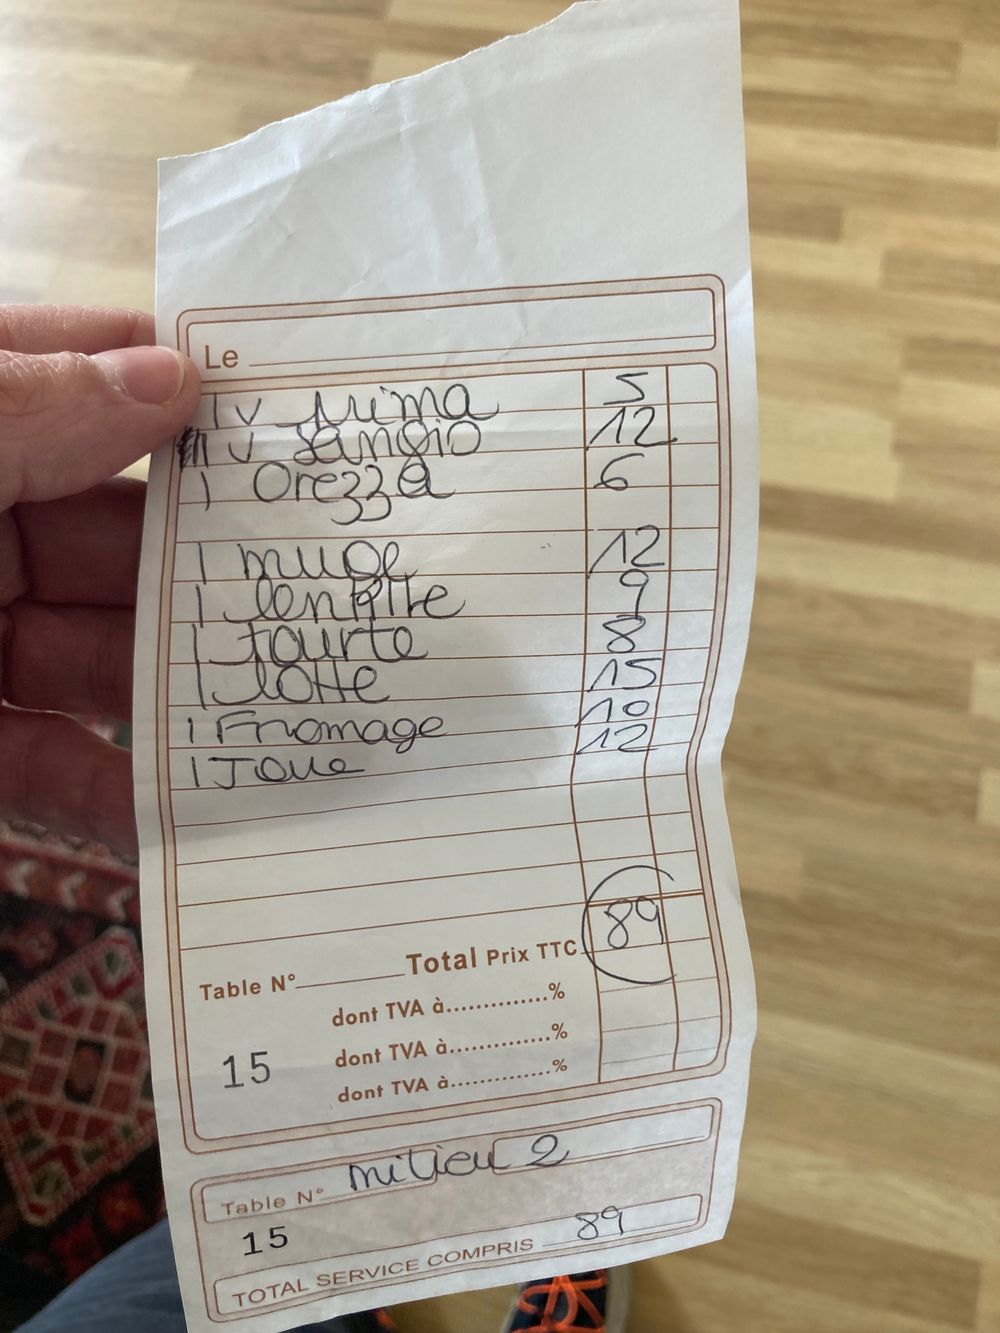 Le
1 v prima 5
1 v sangio 12
1 Orezza 6
1 muge 12
1 lentille 9
1 tourte 8
1 lotte 15
1 Fromage 10
1 Joue 12
Table N° Total Prix TTC 89
dont TVA à..............%
15 dont TVA à..............%
dont TVA à..............%
Table N° milieu 2
15
TOTAL SERVICE COMPRIS 89